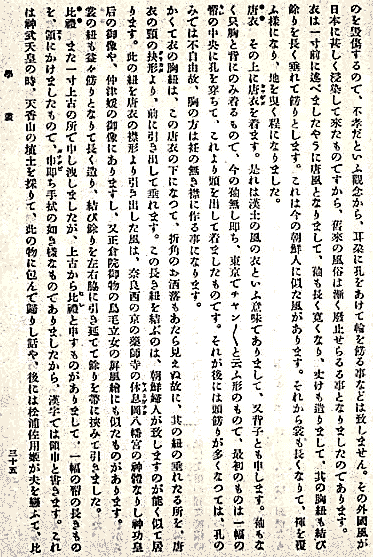 のを毀傷するので、不孝だといふ觀念から、耳朶に孔をあけて輪を篏る事などは致しません。その外國風が
日本に甚しく浸染して來たものですから、舊來の風俗は漸く廢止せらるゝ事となりましたのであります。
衣は一寸前に述べましたやうに唐風となりまして、袖も長く寬くなり、丈けも造りまして、其の胸紐も結び
餘りを長く垂れて餝りとします。これは今の朝鮮人に似た風があります。それから裳も長くなりて、褌を覆
ふ樣になり、地を曳く程になりました。
唐衣 その上に唐衣を着ます。是れは漢土の風の衣といふ意味でありまして、又背子とも申します。袖もな
く只胸と背にのみ着るもので、今の袖無し即ち、東京でチヤン〳〵と云ふ形のもので、最初のものは一幅の
㡡の中央に孔を穿ちて、これより頭を出して着ましたものです。それが後には頭餝りが多くなつては、孔の
みでは不自由故、胸の方は衽の無き襟に作る事になります。
かくて衣の胸紐は、この唐衣の下になつて、折角のお洒落もあたら見えぬ故に、其の紐の垂れたる所を、唐
衣の頸の抉形より、前に引き出して垂れます。この長き紐を結ぶのは、朝鮮婦人が致しますのが能く似て居
ります。此の紐を唐衣の襟形より引き出した風は、奈良西の京の藥師寺の休息岡八幡宮の神體なりし神功皇
后の御像や、仲津媛の御像にありますし、又正倉院御物の鳥毛立女の屏風繪にも似たものがあります。
裳の紐も益々餝りとなりて長く造り、結び餘りを左右脇に引き延てて餘りを帶に挾みて引きました。
比禮 また一寸上古の所で申し洩しましたが、上古から比禮と申すものがありまして、一幅の㡡の長きもの
を、領にかけましたもので、申即ち手拭の如き樣なものでありましたから、漢字では御巾と書きます。これ
は神武天皇の時、天香山の埴土を採りて、此の物に包んで歸りし話や、後には松浦佐用姬が夫を騷ふて、比
學叢
三十五